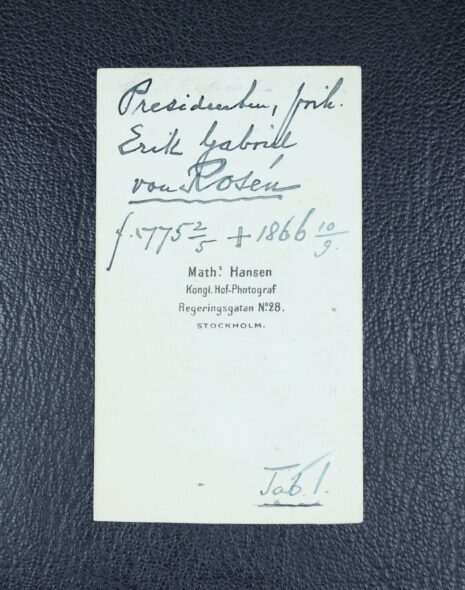 Presidenten, frih.
Erik Gabriel
von Rosén
f. 1775 2/5 + 1866 10/9.
Math.s Hansen
Kongl. Hof-Photograf
Regeringsgatan No 28.
STOCKHOLM.
Tab. 1.